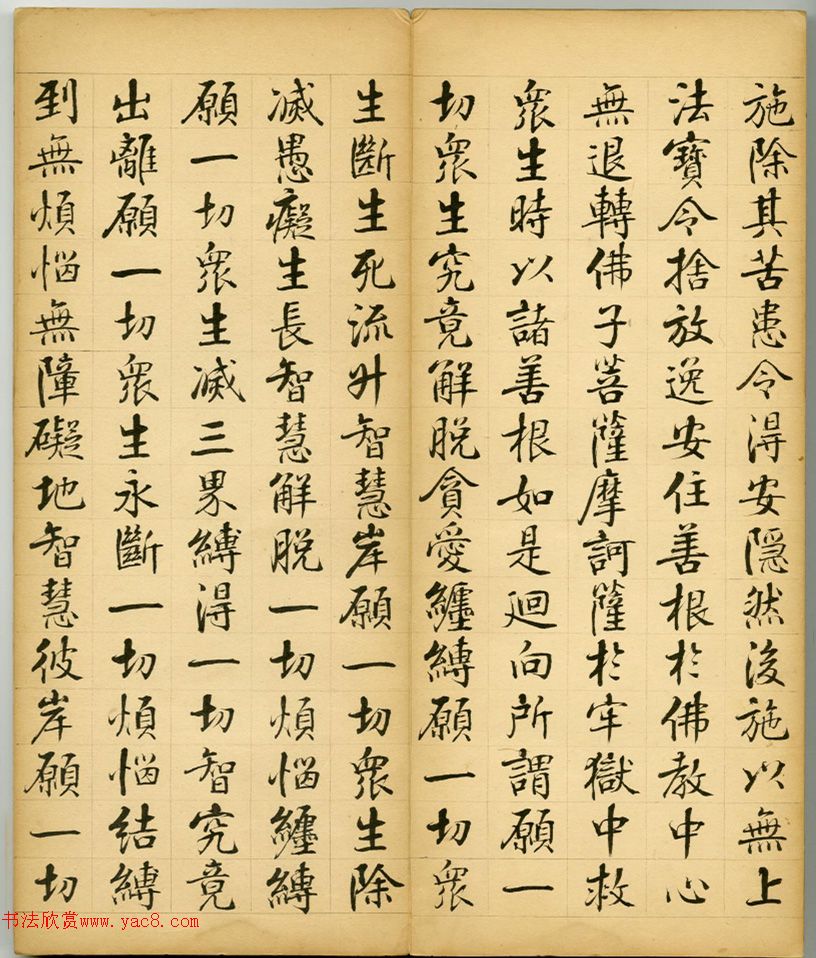 施除其苦患令得安隱然後施以無上
法寶令捨放逸安住善根於佛教中心
無退轉佛子菩薩摩訶薩於牢獄中救
眾生時以諸善根如是迴向所謂願一
切眾生究竟解脫貪愛纏縛願一切眾
生斷生死流升智慧岸願一切眾生除
滅愚癡生長智慧解脫一切煩惱纏縛
願一切眾生滅三界縛得一切智究竟
出離願一切眾生永斷一切煩惱結縛
到無煩惱無障礙地智慧彼岸願一切
书法欣赏www.yac8.com